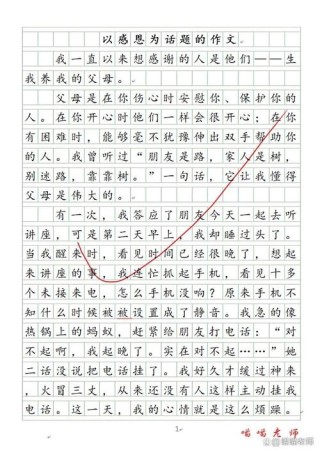 以感恩为话题的作文
我一直以来想感谢的人是他们——生
我养我的父母。
父母是在你伤心时安慰你、保护你的
人。在你开心时他们一样会很开心；在你
有困难时，能够毫不犹豫伸出双手帮助你
的人。我曾听过“朋友是路，家人是树，
别迷路，靠靠树。”一句话，它让我懂得
父母是伟大的。
有一次，我答应了朋友今天一起去听
讲座，可是第二天早上，我却睡过头了。
当我醒来时，看见时间已经很晚了，想起
来讲座的事，我连忙抓起手机，看见十多
个未接来电，怎么手机没响？原来手机不
知什么时候被被设置成了静音。我急的像
热锅上的蚂蚁，赶紧给朋友打电话：“对
不起啊，我起晚了。实在对不起……”她
二话没说把电话挂了。我好久才缓过神来
，火冒三丈，从来还没有人这样主动挂我
电话。这一天，我的心情就是这么烦躁。
1
喵喵老师